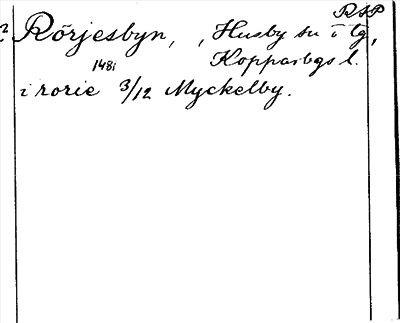 RAP
Rörjesbyn, , Husby sn i lg,
Kopparbgs l.
1481
i rorie 3/12 Myckelby.